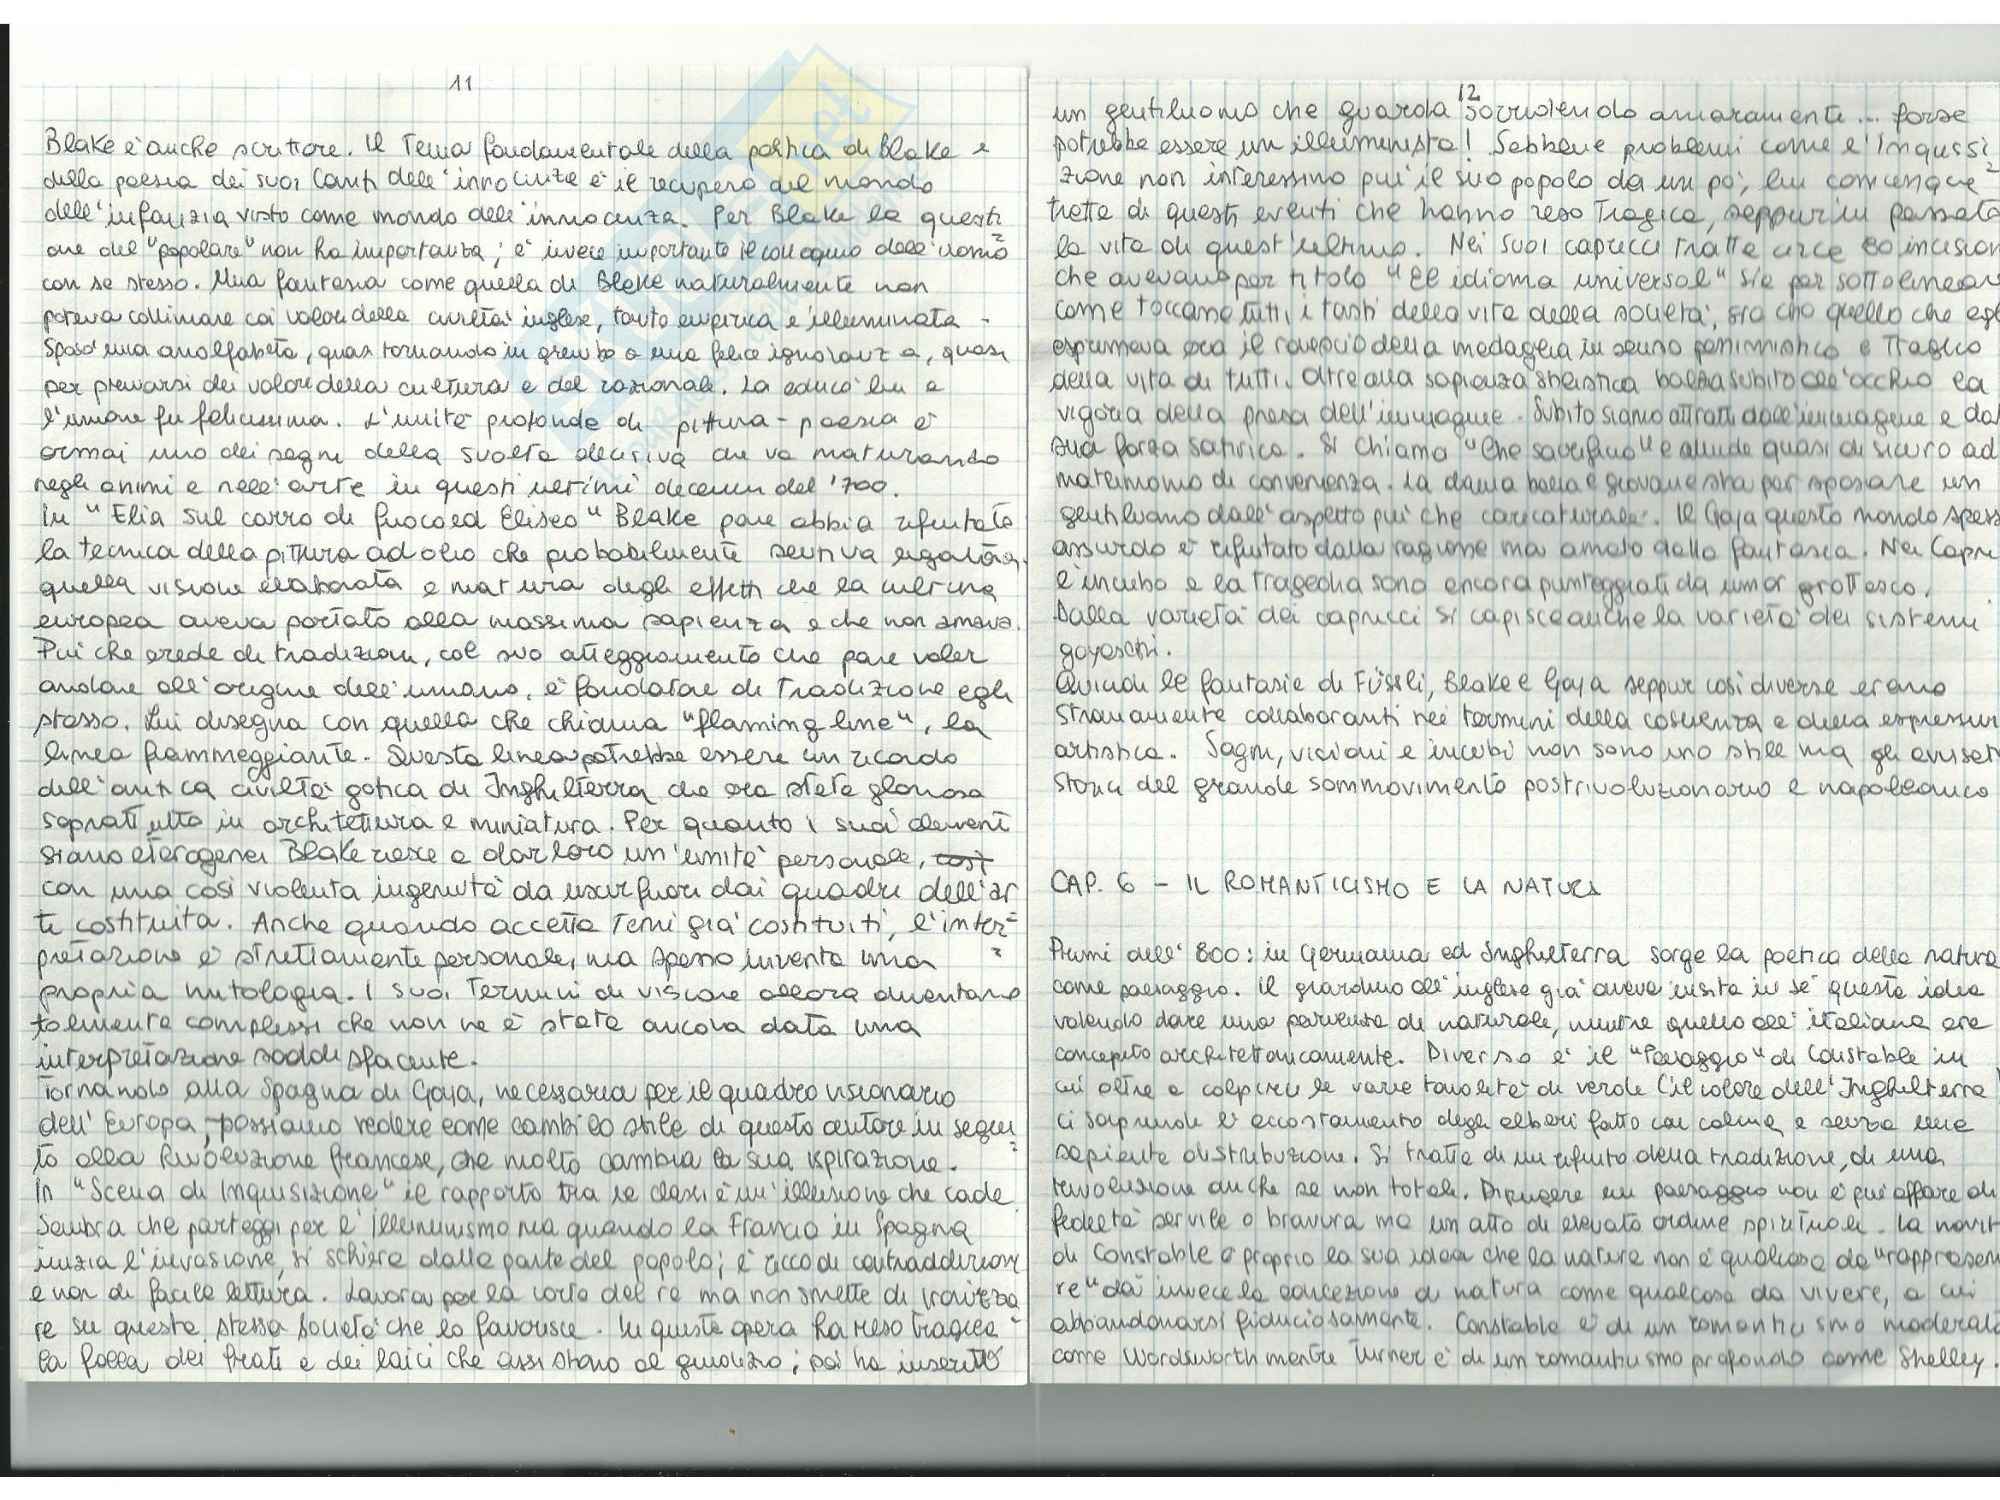 11
Blake è anche scrittore. Il Tema fondamentale della poetica di Blake e
della poesia dei suoi Canti dell'innocenza è il recupero del mondo
dell'infanzia visto come mondo dell'innocenza. Per Blake la questi
one del "popolare" non ha importanza; è invece importante il colloquio dell'uomo
con se stesso. Una fantasia come quella di Blake naturalmente non
poteva collimare coi valori della civiltà inglese, tanto empirica e illuminata.
Sposò una analfabeta, quasi tornando in grembo a una felice ignoranza, quasi
per privarsi dei valori della cultura e del razionale. La educò lui e
l'unione fu felicissima. L'unità profonda di pittura-poesia è
ormai uno dei segni della svolta decisiva che va maturando
negli animi e nell'arte in questi ultimi decenni del '700.
In "Elia sul carro di fuoco ed Eliseo" Blake pare abbia rifiutato
la tecnica della pittura ad olio che probabilmente sentiva legata a
quella visione elaborata e matura degli effetti che la cultura
europea aveva portato alla massima sapienza e che non amava.
Più che erede di tradizioni, col suo atteggiamento che pare voler
andare all'origine dell'umano, è fondatore di Tradizione egli
stesso. Lui disegna con quella che chiama "flaming line", la
linea fiammeggiante. Questa linea potrebbe essere un ricordo
dell'antica civiltà gotica di Inghilterra che era stata gloriosa
soprattutto in architettura e miniatura. Per quanto i suoi elementi
siano eterogenei Blake riesce a dar loro un'unità personale, così
con una così violenta ingenuità da uscir fuori dai quadri dell'ar
te costituita. Anche quando accetta Temi già costituiti, l'inter=
pretazione è strettamente personale, ma spesso inventa una
propria mitologia. I suoi Termini di visione allora diventano
talmente complessi che non ne è stata ancora data una
interpretazione soddisfacente.
Tornando alla Spagna di Goja, necessaria per il quadro visionario
dell'Europa, possiamo vedere come cambi lo stile di questo autore in segui
to alla Rivoluzione francese, che molto cambia la sua ispirazione.
In "Scena di Inquisizione" il rapporto tra le classi è un'illusione che cade.
Sembra che parteggi per l'illuminismo ma quando la Francia in Spagna
inizia l'invasione, si schiera dalla parte del popolo; è ricco di contraddizioni
e non di facile lettura. Lavora per la corte del re ma non smette di ironizza
re su questa stessa società che lo favorisce. In questa opera ha reso tragica
la folla dei frati e dei laici che assistono al giudizio; poi ha inserito
12
un gentiluomo che guarda sorridendo amaramente... forse
potrebbe essere un illuminista! Sebbene problemi come l'Inquisi
zione non interessino più il suo popolo da un po', lui comunque
tratta di questi eventi che hanno reso Tragica, seppur in passato
la vita di quest'ultimo. Nei suoi capricci tratta circa 80 incision
che avevano per titolo "El idioma universal" sia per sottolinear
come toccano tutti i tasti della vita della società, sia che quello che egl
esprimeva era il rovescio della medaglia in senso pessimistico e Tragico
della vita di tutti. Oltre alla sapienza stilistica balza subito all'occhio la
vigoria della presa dell'immagine. Subito siamo attratti dall'immagine e dal
sua forza satirica. Si chiama "Che sacrificio" e allude quasi di sicuro ad
matrimonio di convenienza. La dama bella e giovane sta per sposare un
gentiluomo dall'aspetto più che caricaturale. Il Goja questo mondo spess
assurdo è rifiutato dalla ragione ma amato dalla fantasia. Nei Capri
l'incubo e la tragedia sono ancora punteggiati da umor grottesco.
Dalla varietà dei capricci si capisce anche la varietà dei sistemi
goyeschi.
Quindi le fantasie di Füssli, Blake e Goja seppur così diverse erano
stranamente collaboranti nei termini della coscienza e della espression
artistica. Sogni, visioni e incubi non sono uno stile ma gli
storici del grande sommovimento postrivoluzionario e napoleonico
CAP. 6 - IL ROMANTICISMO E LA NATURA
Primi dell'800: in Germania ed Inghilterra sorge la poetica della natura
come paesaggio. Il giardino all'inglese già aveva insita in sé questa idea
volendo dare una parvenza di naturale, mentre quello all'italiana era
concepito architettonicamente. Diverso è il "Paesaggio" di Constable in
cui oltre a colpirci le varie tonalità di verde (il colore dell'Inghilterra)
ci sorprende l'accostamento degli alberi fatto con calma e senza una
sapiente distribuzione. Si tratta di un rifiuto della tradizione, di una
rivoluzione anche se non totale. Dipingere un paesaggio non è più affare di
fedeltà servile o bravura ma un atto di elevato ordine spirituale. La novit
di Constable è proprio la sua idea che la natura non è qualcosa da "rappresen
re" dà invece la concezione di natura come qualcosa da vivere, a cui
abbandonarsi fiduciosamente. Constable è di un romanticismo moderato
come Wordsworth mentre Turner è di un romanticismo profondo come Shelley.